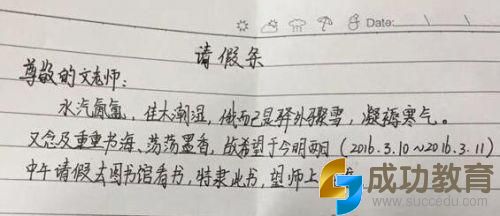 Date:
请假条
尊敬的文老师:
水汽氤氲,佳木潮湿,俄而已是驿外骤雪,凝褥寒气。
又念及重重书海,荡荡墨香,故希望于今明两日(2016.3.10~2016.3.11)
中午请假去图书馆看书,特隶此书,望师上
成功教育
www.succedu.com